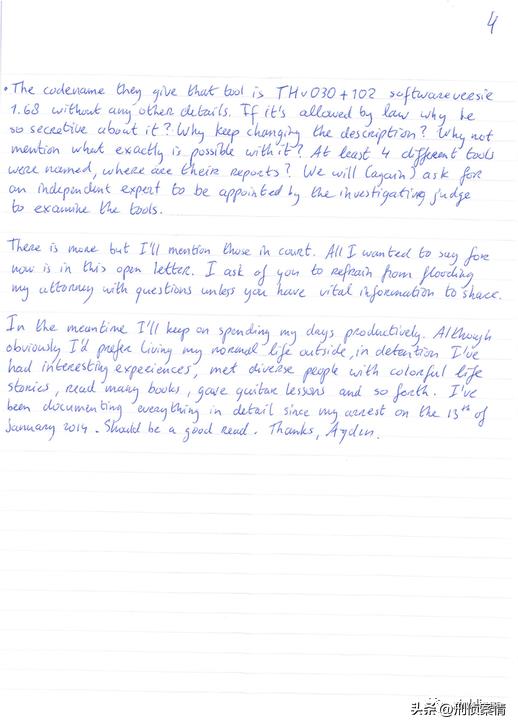 4
• The codename they give that tool is THv030+102 softwareversie
1.68 without any other details. If it's allowed by law why be
so secretive about it? Why keep changing the description? Why not
mention what exactly is possible with it? At least 4 different tools
were named, where are their reports? We will (again) ask for
an independent expert to be appointed by the investigating judge
to examine the tools.
There is more but I'll mention those in court. All I wanted to say for
now is in this open letter. I ask of you to refrain from flooding
my attorney with questions unless you have vital information to share.
In the meantime I'll keep on spending my days productively. Although
obviously I'd prefer living my normal life outside, in detention I've
had interesting experiences, met diverse people with colorful life
stories, read many books, gave guitar lessons and so forth. I've
been documenting everything in detail since my arrest on the 13th of
January 2014. Should be a good read. Thanks, Aydin.
头条 @刑侦案情